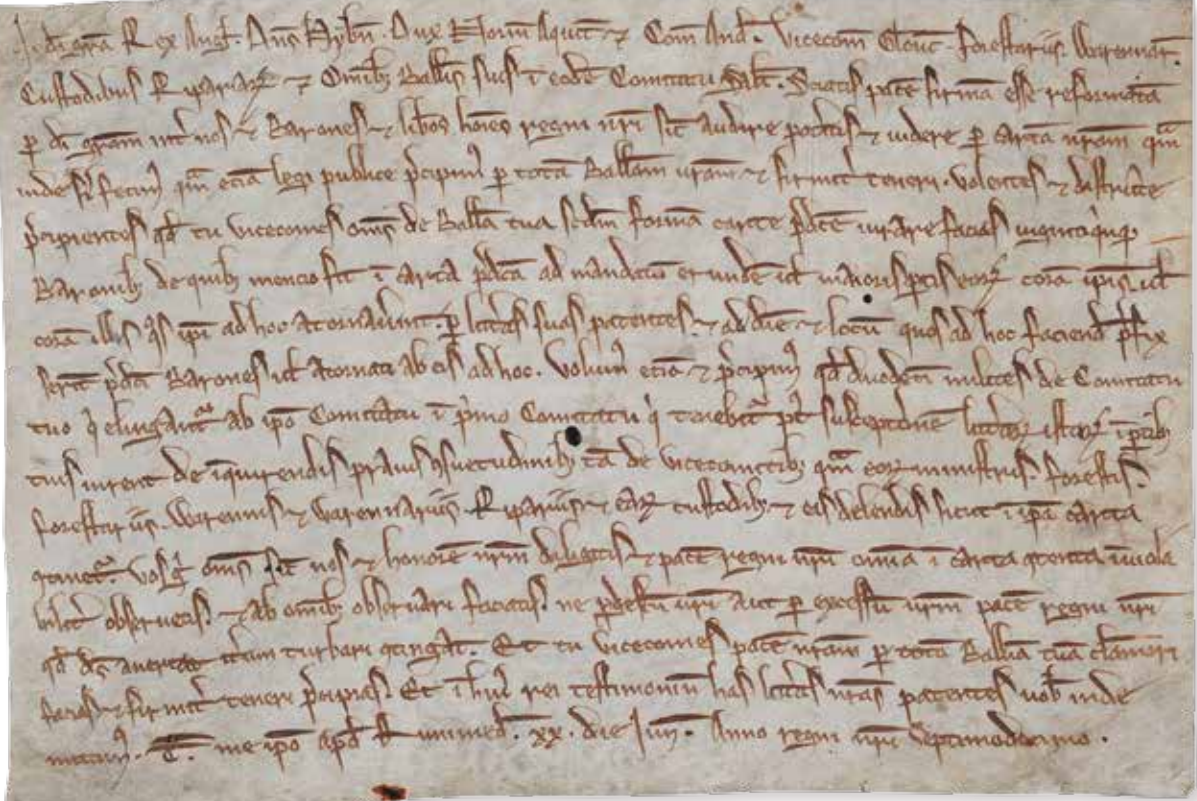 J. di gra Rex Angl. Dns Hybn. Dux Norm Aquit ⁊ Com And. Vicecom Glouc. forestariis. Warennar.
Custodibus Ripariaꝝ ⁊ Omibꝫ Ballis suis i eode Comitatu Salt. Sciatis pace firma esse reformata
ꝑ di gram int nos ⁊ Barones ⁊ libos hoies regni nri sic audire potitis ⁊ videre ꝑ carta nram qm
inde fi fecimꝰ qm ecia legi publice pcipimꝰ ꝑ tota Balliam vram ⁊ firmit teneri. volentes ⁊ districte
pcipientes qd tu vicecomes oms de Ballia tua scdm forma carte pdce iurare facias viginti qinqꝫ
Baronibꝫ de quibꝫ mencio fit i carta pdca ad mandatu eorundem ul maioris ptis eoꝝ cora ipis ul
cora illis qs ipi ad hoc atornaverint ꝑ litteras suas patentes ⁊ ad die ⁊ locu quos ad hoc faciend pfix
serint pdci Barones ul atornati ab eis ad hoc. Volumꝰ ecia ⁊ pcipimꝰ qd duodeci milites de Comitatu
tuo qi eligent ab ipo Comitatu i primo Comitatu qi tenebit pt susceptione litteraꝝ istaꝝ i ptibꝫ
tuis iurent de inquirendis pravis ꝯsuetudinibꝫ ta de vicecomitibꝫ qm eoꝝ ministris. forestis.
forestariis. Warennis ⁊ Warennariis. Ripariis ⁊ eaꝝ custodibꝫ ⁊ eis delendis sicut i ipa carta
ꝯtinet. Vos igr oms sicut nos ⁊ honore nrm diligitis ⁊ pace regni nri omia i carta ꝯtenta inviola
bilit observetis ⁊ ab omibꝫ observari faciatis. ne ꝑ defectu vri aut ꝑ excessu vrm pace regni nri
qd ds avertat itum turbari ꝯtingat. Et tu vicecomes pace nram ꝑ tota Balliam tua clamari
facias ⁊ firmit teneri pcipias. Et i huiꝰ rei testimoniu has litteras nras patentes vob inde
mittimꝰ. T. me ipo apd Runimed. xx. die Jun. Anno regni nri Septimodecimo.